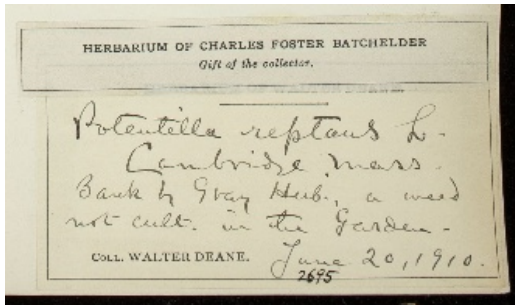 HERBARIUM OF CHARLES FOSTER BATCHELDER
Gift of the collector.
HERBARIUM OF WALTER DEANE.
Potentilla reptans L.
Cambridge, Mass.
Bank by Gray Herb., a weed
not cult. in the Garden.
COLL. WALTER DEANE. June 20, 1910.
2695